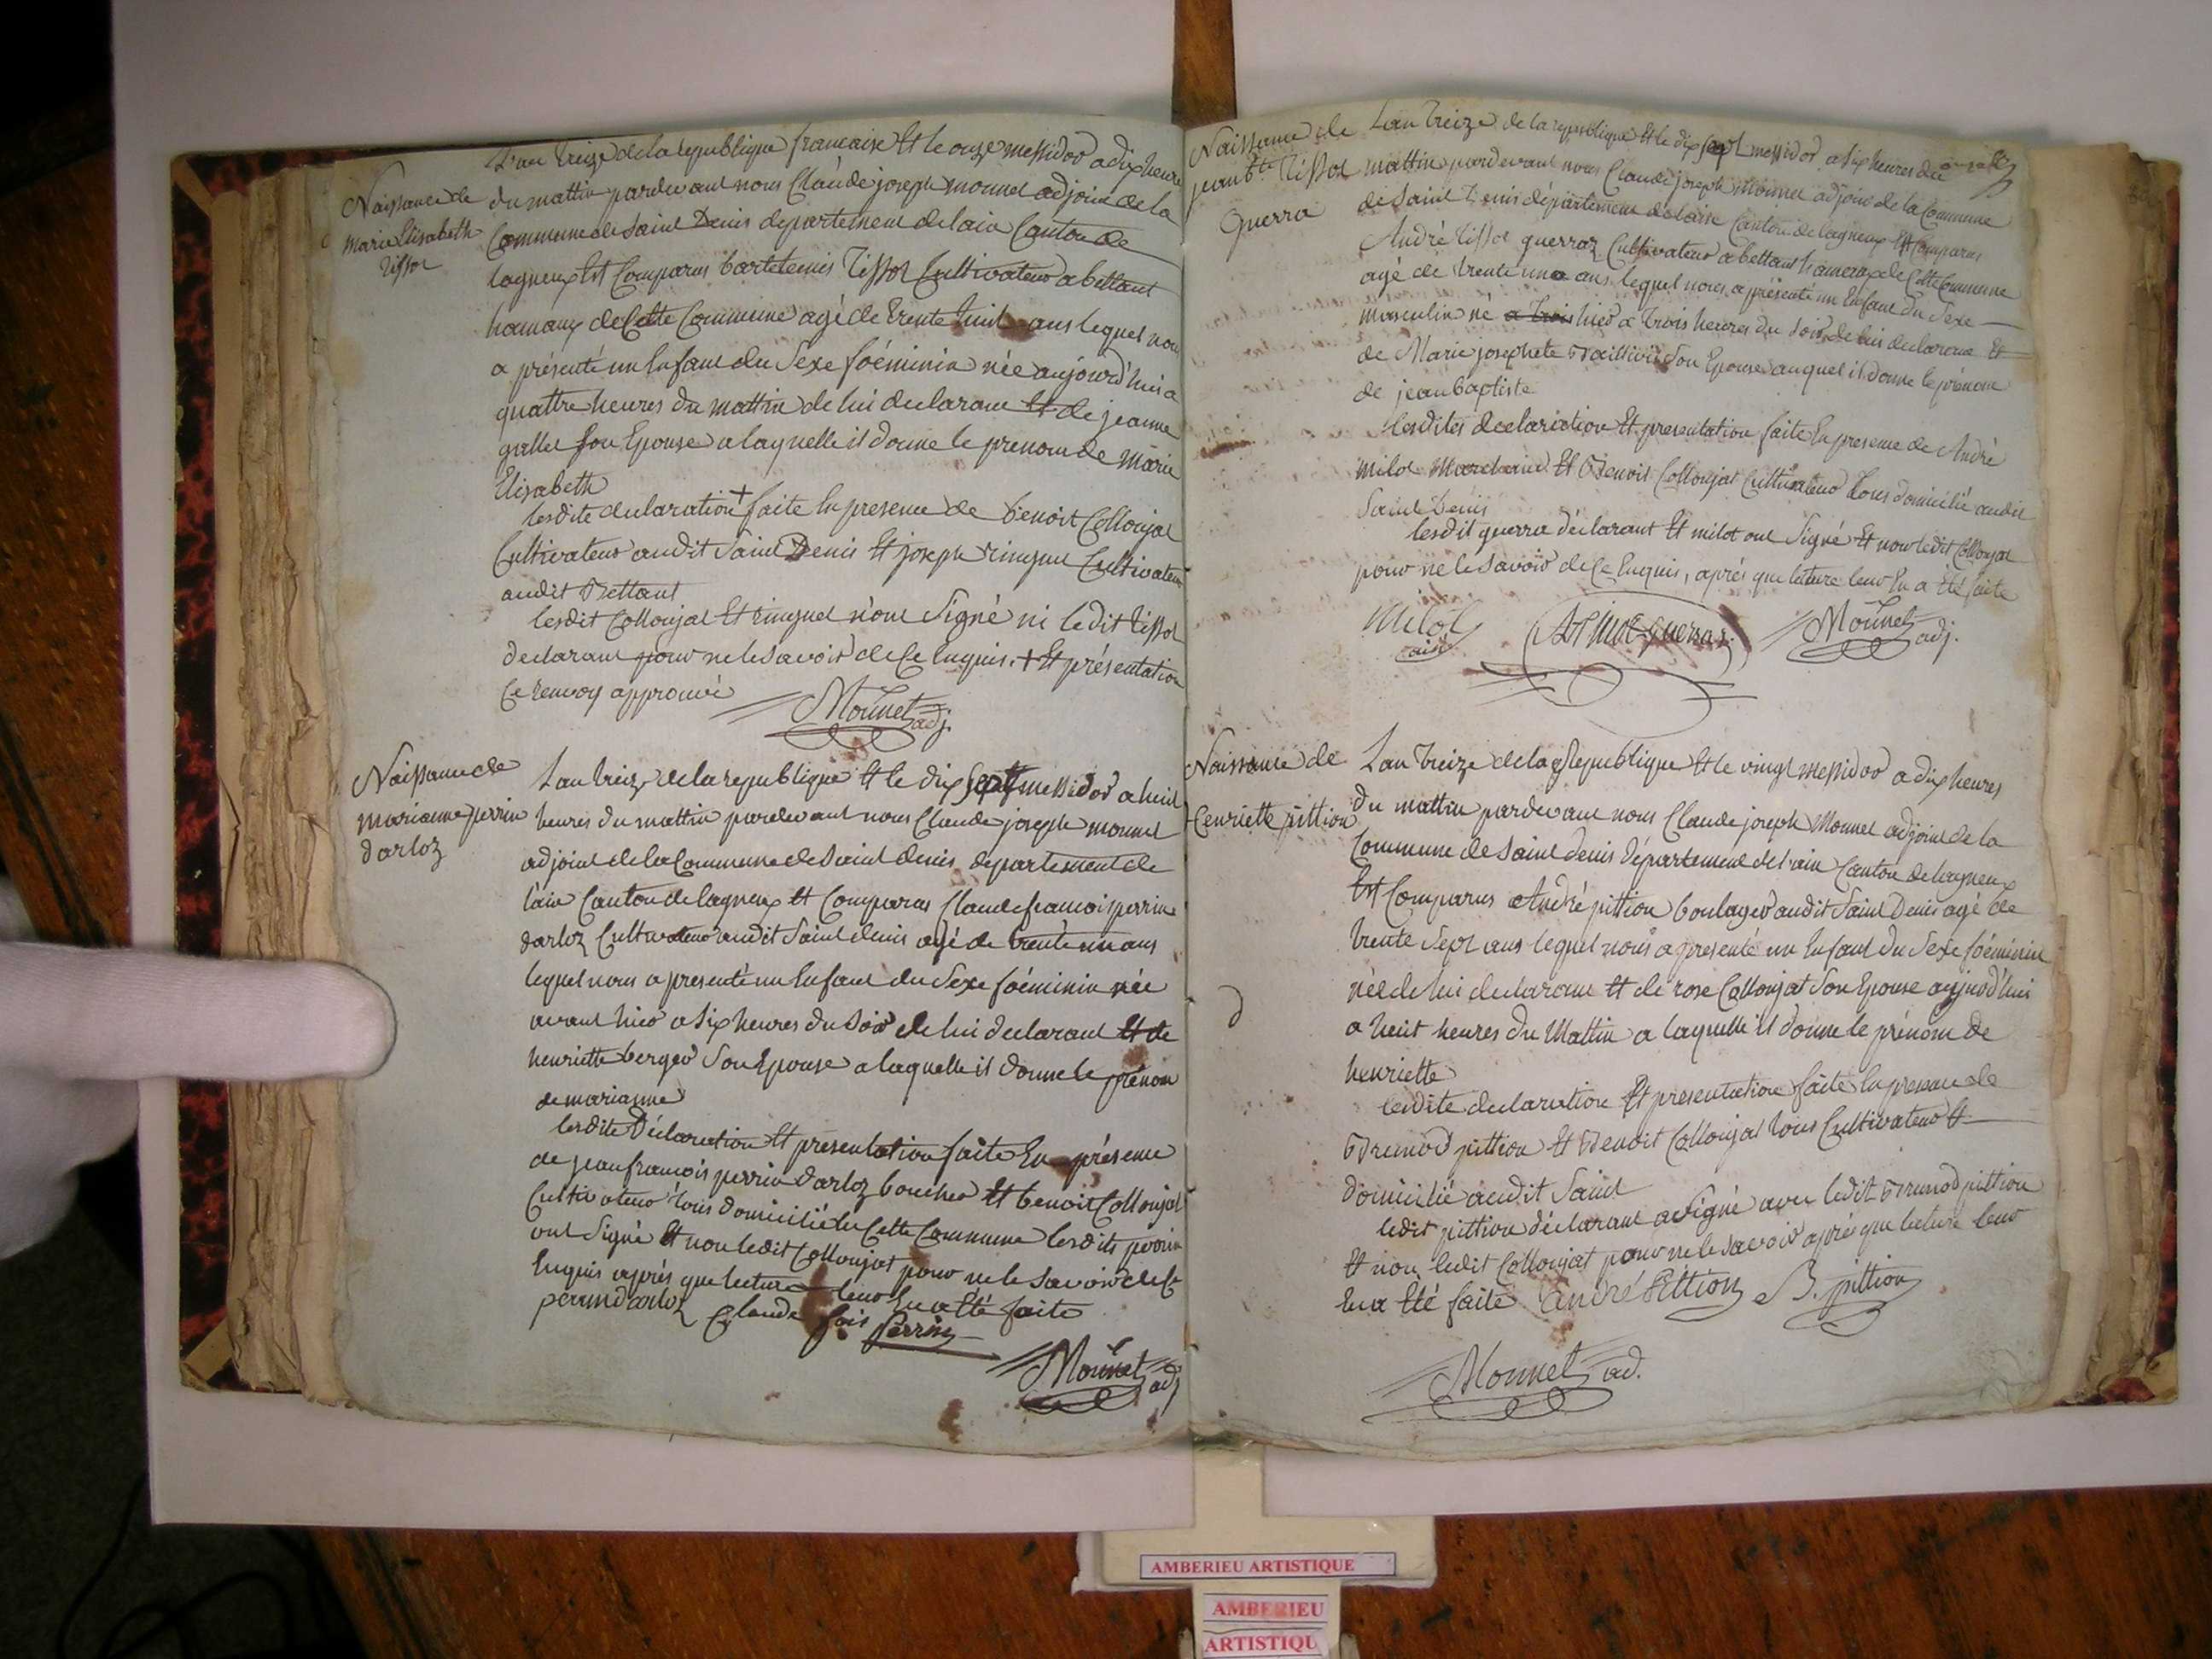 Naissance de
Marie Elisabeth
Tissot
L'an treize de la republique francaise Et le onze messidor a dix heure
du mattin pardevant nous Claude joseph monnet adjoint de la
Commune de Saint Denis departement de lain Canton de
lagneux Est Comparus bartelemis Tissot Cultivateur a bettant
hamaux de Cette Commune agé de trente huit ans lequel nous
a présenté un Enfant du Sexe foéminin née aujourd'hui a
quattre heures du mattin de lui declarant Et de jeanne
gallet Son Epouse a laquelle il donne le prenom de marie
Elisabeth
lesdite declaration + faite En presence de benoit Collonjat
Cultivateur audit Saint Denis Et joseph ringuet Cultivateur
audit Bettant
lesdit Collonjat Et ringuet n'ont Signé ni ledit tissot
declarant pour ne le Savoir de Ce Enquis. + Et présentation
Ce renvoy approuvé
Monnet adj.
Naissance de
marianne perrin
darloz
Lan treize de la republique Et le dix Sept messidor a huit
heures du mattin pardevant nous Claude joseph monnet
adjoint de la Commune de Saint denis departement de
lain Canton de lagneux Et Comparus Claude francois perrin
darloz Cultivateur audit Saint denis agé de trente un ans
lequel nous a presenté un Enfant du Sexe foéminin née
avant hier a Six heures du Soir de lui declarant Et de
henriette berger Son Epouse a laquelle il donne le prénom
de marianne
lesdite Déclaration Et presentation faite En présence
de jean francois perrin darloz boucher Et benoit Collonjat
Cultivateur tous domicilié En Cette Commune lesdits perrin
ont Signé Et non ledit Collonjat pour ne le Savoir de Ce
Enquis après que lecture leur En a Eté faite
perrin darloz Claude fois Perrin
Monnet adj
Naissance de
jean Bte Tissot
Guerra
Lan treize de la republique Et le dix Sept messidor a Six heures du
mattin pardevant nous Claude joseph monnet adjoint de la Commune
de Saint Denis département de laise Canton de lagneux Est Comparus
André Tissot guerraz Cultivateur a bettant hameaux de Cette Commune
agé de trente un ans lequel nous a présenté un Enfant du Sexe
masculin né a trois hier a trois heures du Soir de lui declarant Et
de Marie josephete Son Epouse auquel il donne le prénom
de jean baptiste
lesdites declariation Et presentation faite En presence de André
milot Marchand Et Benoit Collonjat Cultivateur tous domicilié audit
Saint Denis
lesdit guerra déclarant Et milot ont Signé Et non ledit Collonjat
pour ne le Savoir de Ce Enquis, après que lecture leur En a Eté faite
Milot
ainé
Monnet adj.
Naissance de
henriette pittion
Lan treize de la Republique Et le vingt messidor a dix heures
du mattin pardevant nous Claude joseph Monnet adjoint de la
Commune de Saint denis département de l'ain Canton de lagneux
Est Comparus André pittion boulager audit Saint Denis agé de
trente Sept ans lequel nous a presenté un Enfant du Sexe foéminin
née de lui declarant Et de rose Collonjat Son Epouse aujourd'hui
a huit heures du Mattin a laquelle il donne le prénom de
henriette
lesdite declaration Et presentation faite En presence de
Brunod pittion Et Benoit Collonjat tous Cultivateur Et
domicilié audit Saint
ledit pittion déclarant a Signé avec ledit Brunod pittion
Et non ledit Collonjat pour ne le Savoir après que lecture leur
En a Eté faite André Pittion B. pittion
Monnet ad.
AMBERIEU ARTISTIQUE
AMBERIEU
ARTISTIQU